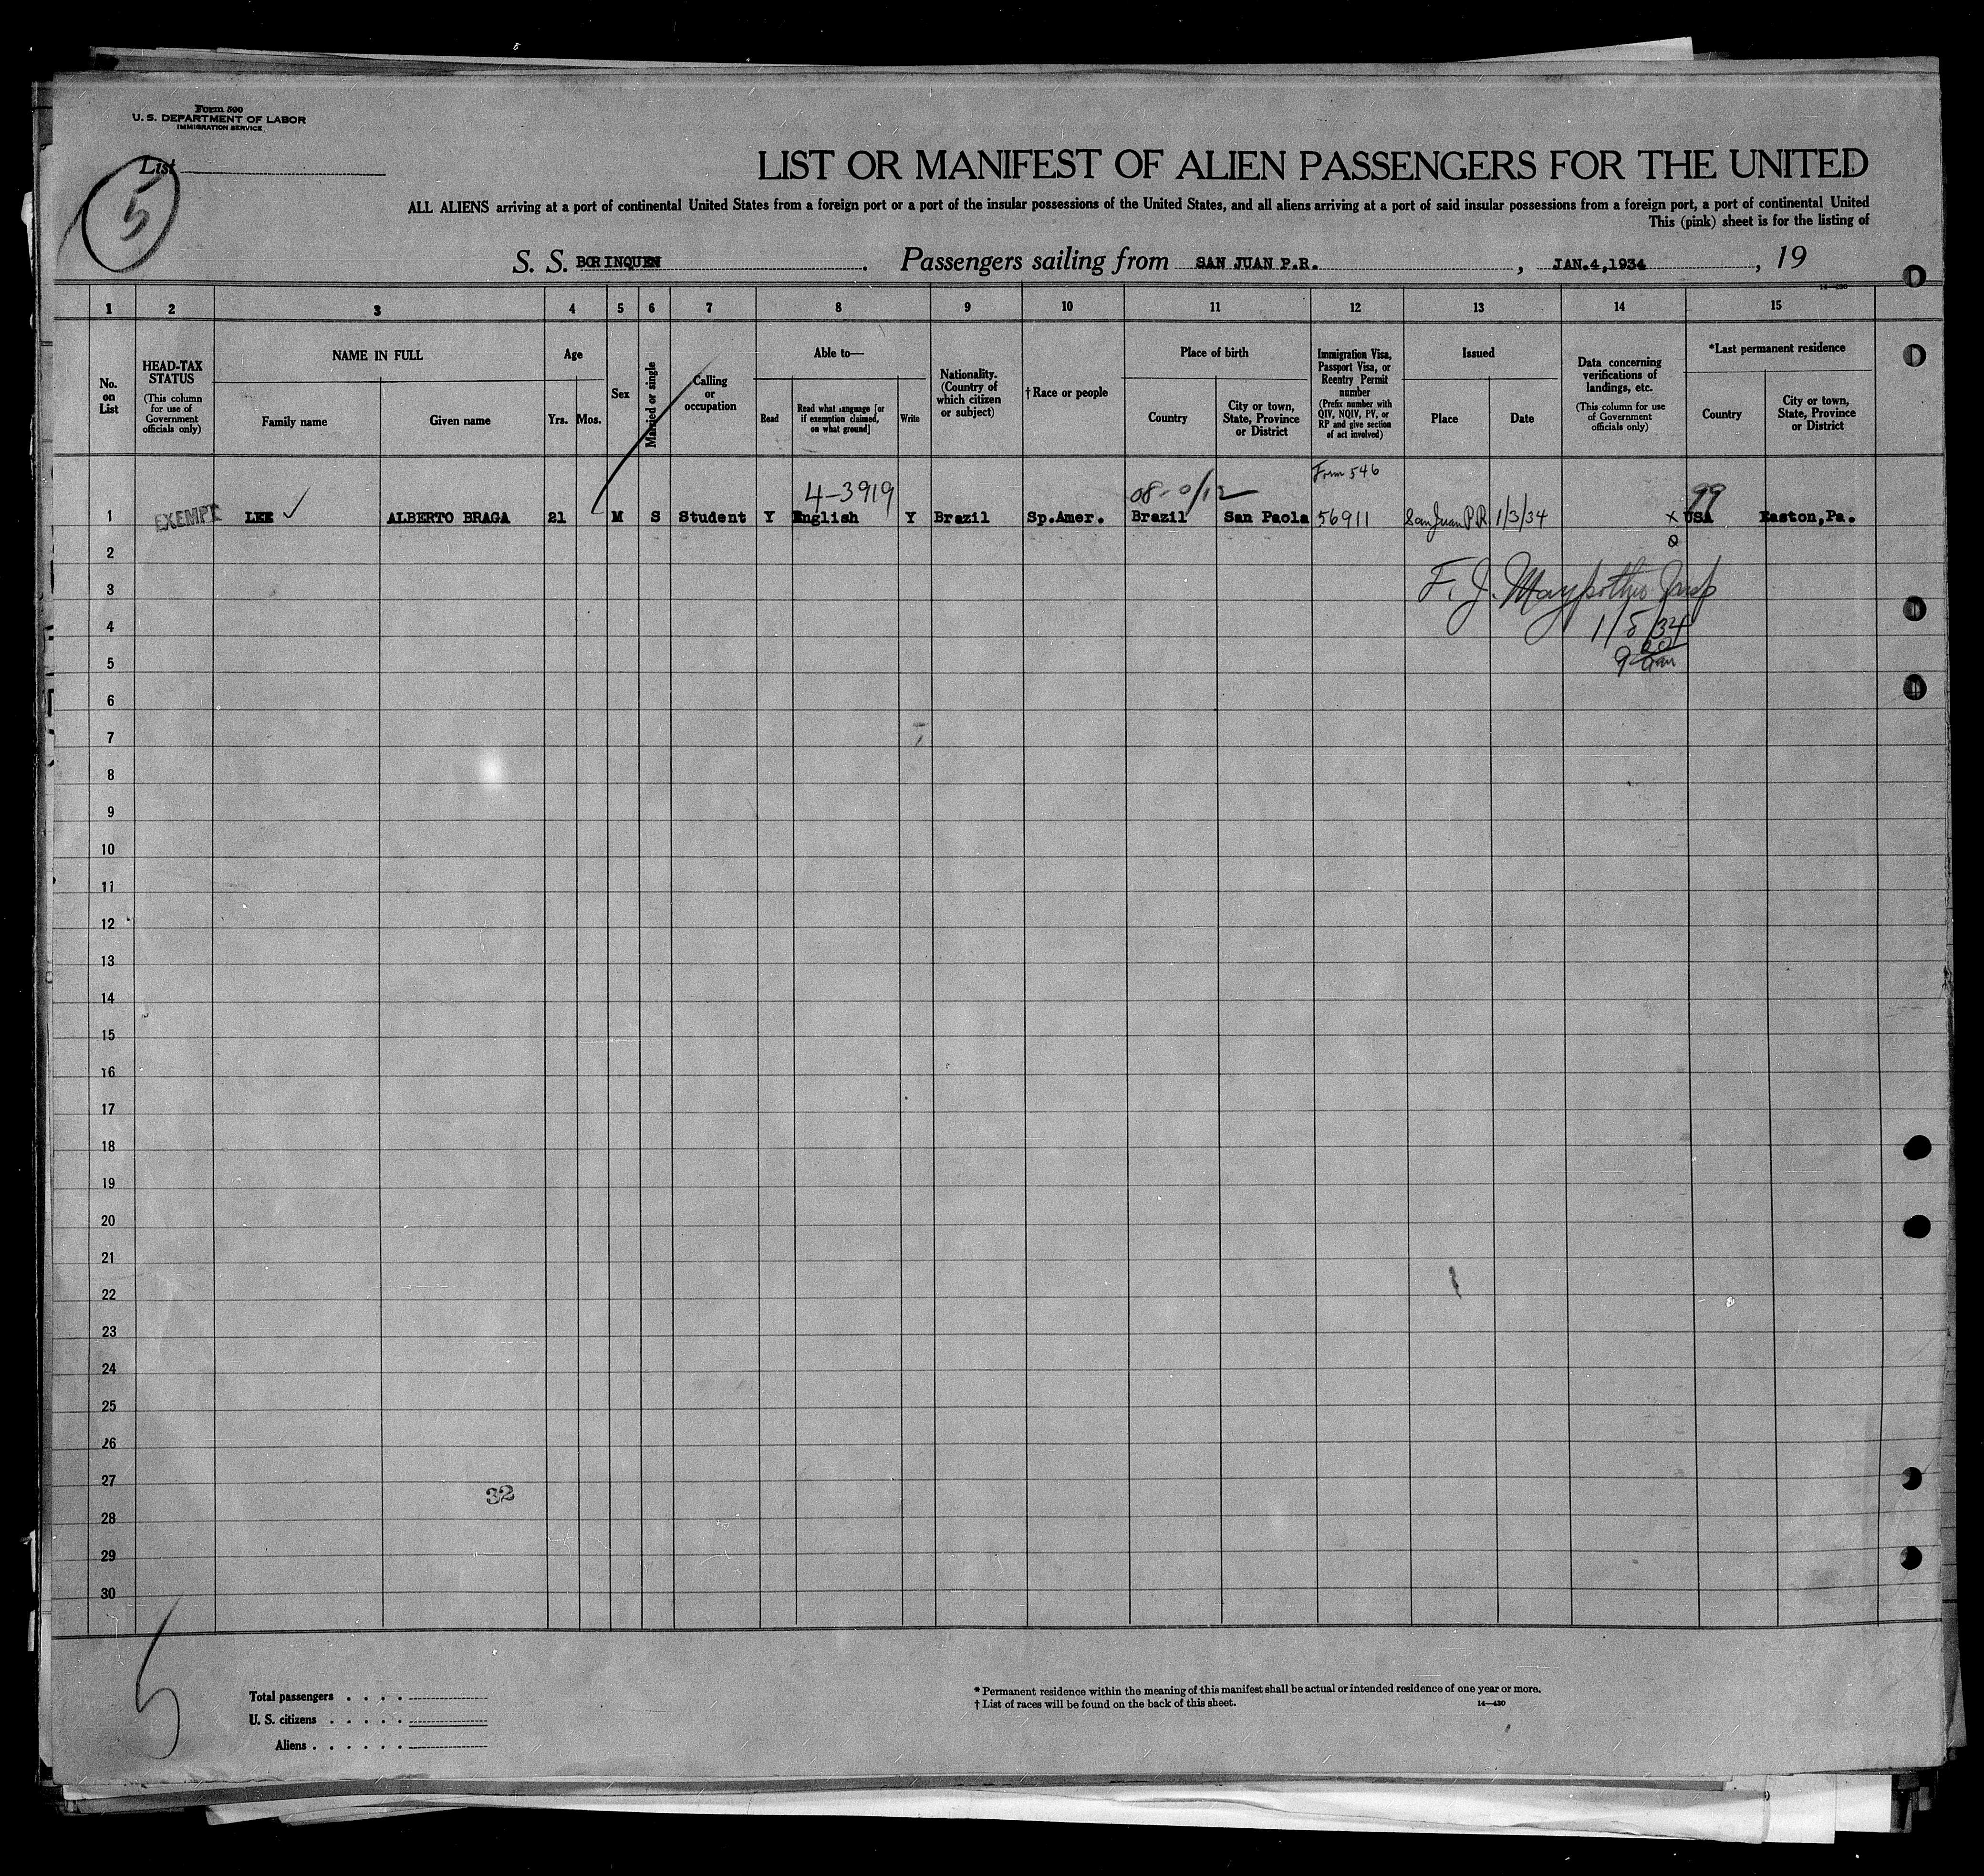 Form 500
U. S. DEPARTMENT OF LABOR
IMMIGRATION SERVICE
List
5
LIST OR MANIFEST OF ALIEN PASSENGERS FOR THE UNITED
ALL ALIENS arriving at a port of continental United States from a foreign port or a port of the insular possessions of the United States, and all aliens arriving at a port of said insular possessions from a foreign port, a port of continental United
This (pink) sheet is for the listing of
S. S. BORINQUEN. Passengers sailing from SAN JUAN P.R., JAN.4,1934, 19
14—430
1 2 3 4 5 6 7 8 9 10 11 12 13 14 15
No. on List
HEAD-TAX STATUS
(This column for use of Government officials only)
NAME IN FULL
Family name
Given name
Age
Yrs. Mos.
Sex
Married or single
Calling or occupation
Able to—
Read
Read what language [or if exemption claimed, on what ground]
Write
Nationality. (Country of which citizen or subject)
† Race or people
Place of birth
Country
City or town, State, Province or District
Immigration Visa, Passport Visa, or Reentry Permit number
(Prefix number with QIV, NQIV, PV, or RP and give section of act involved)
Issued
Place
Date
Data concerning verifications of landings, etc.
(This column for use of Government officials only)
*Last permanent residence
Country
City or town, State, Province or District
Form 546
4-3919
99
1 EXEMPT LEE ✓ ALBERTO BRAGA 21 M S Student Y English Y Brazil Sp.Amer. Brazil San Paola 56911 San Juan P.R. 1/3/34 x USA Easton,Pa.
2
3 F. J.
4
5
6
7
8
9
10
11
12
13
14
15
16
17
18
19
20
21
22
23
24
25
26
27
32
28
29
30
5
Total passengers . . . .
U. S. citizens . . . . .
Aliens . . . . . .
* Permanent residence within the meaning of this manifest shall be actual or intended residence of one year or more.
† List of races will be found on the back of this sheet.
14—430